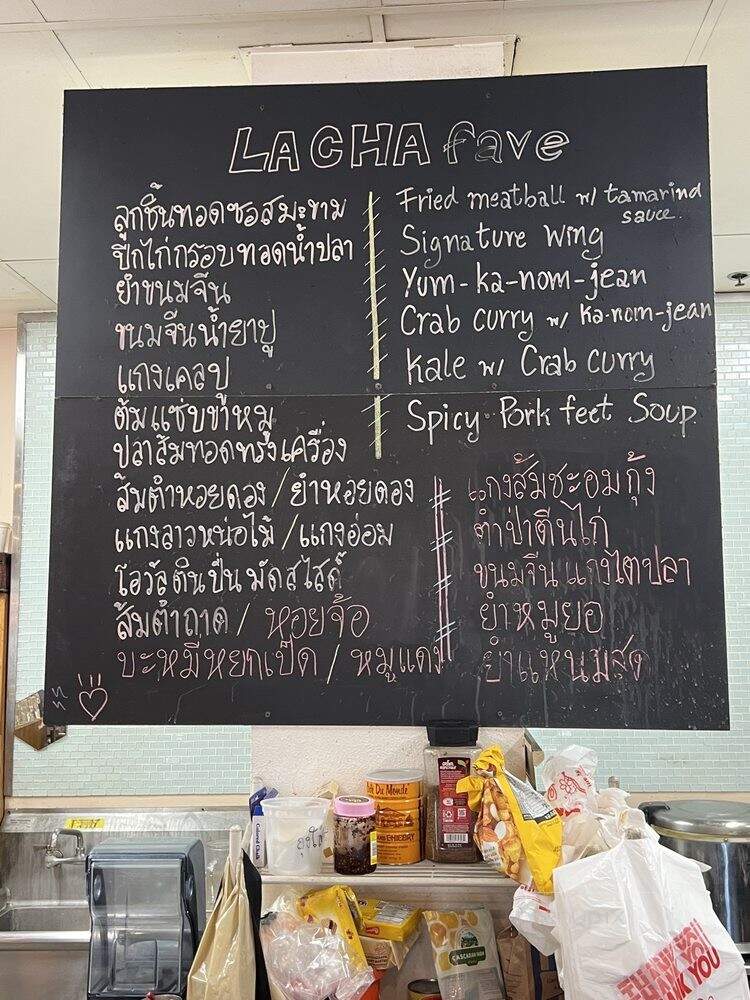 LACHA fave
ลูกชิ้นทอดซอสมะขาม
ปีกไก่กรอบทอดน้ำปลา
ยำขนมจีน
ขนมจีนน้ำยาปู
แกงเคลปู
ต้มแซ่บขาหมู
ปลาส้มทอดทรงเครื่อง
ส้มตำหอยดอง / ยำหอยดอง
แกงลาวหน่อไม้ / แกงอ่อม
โอวัลตินปั่นมัดสไสด์
ส้มตำถาด / หอยจ้อ
บะหมี่หยกเป็ด / หมูแดง
Fried meatball w/ tamarind
sauce.
Signature Wing
Yum-ka-nom-jean
Crab curry w/ ka-nom-jean
Kale w/ Crab curry
Spicy Pork feet Soup
แกงส้มชะอมกุ้ง
ตำป่าตีนไก่
ขนมจีนแกงไตปลา
ยำหมูยอ
ยำแหนมสด
Colored Chalk
Du Monde
CASCADIAN FARM
THANK YOU
THANK YOU